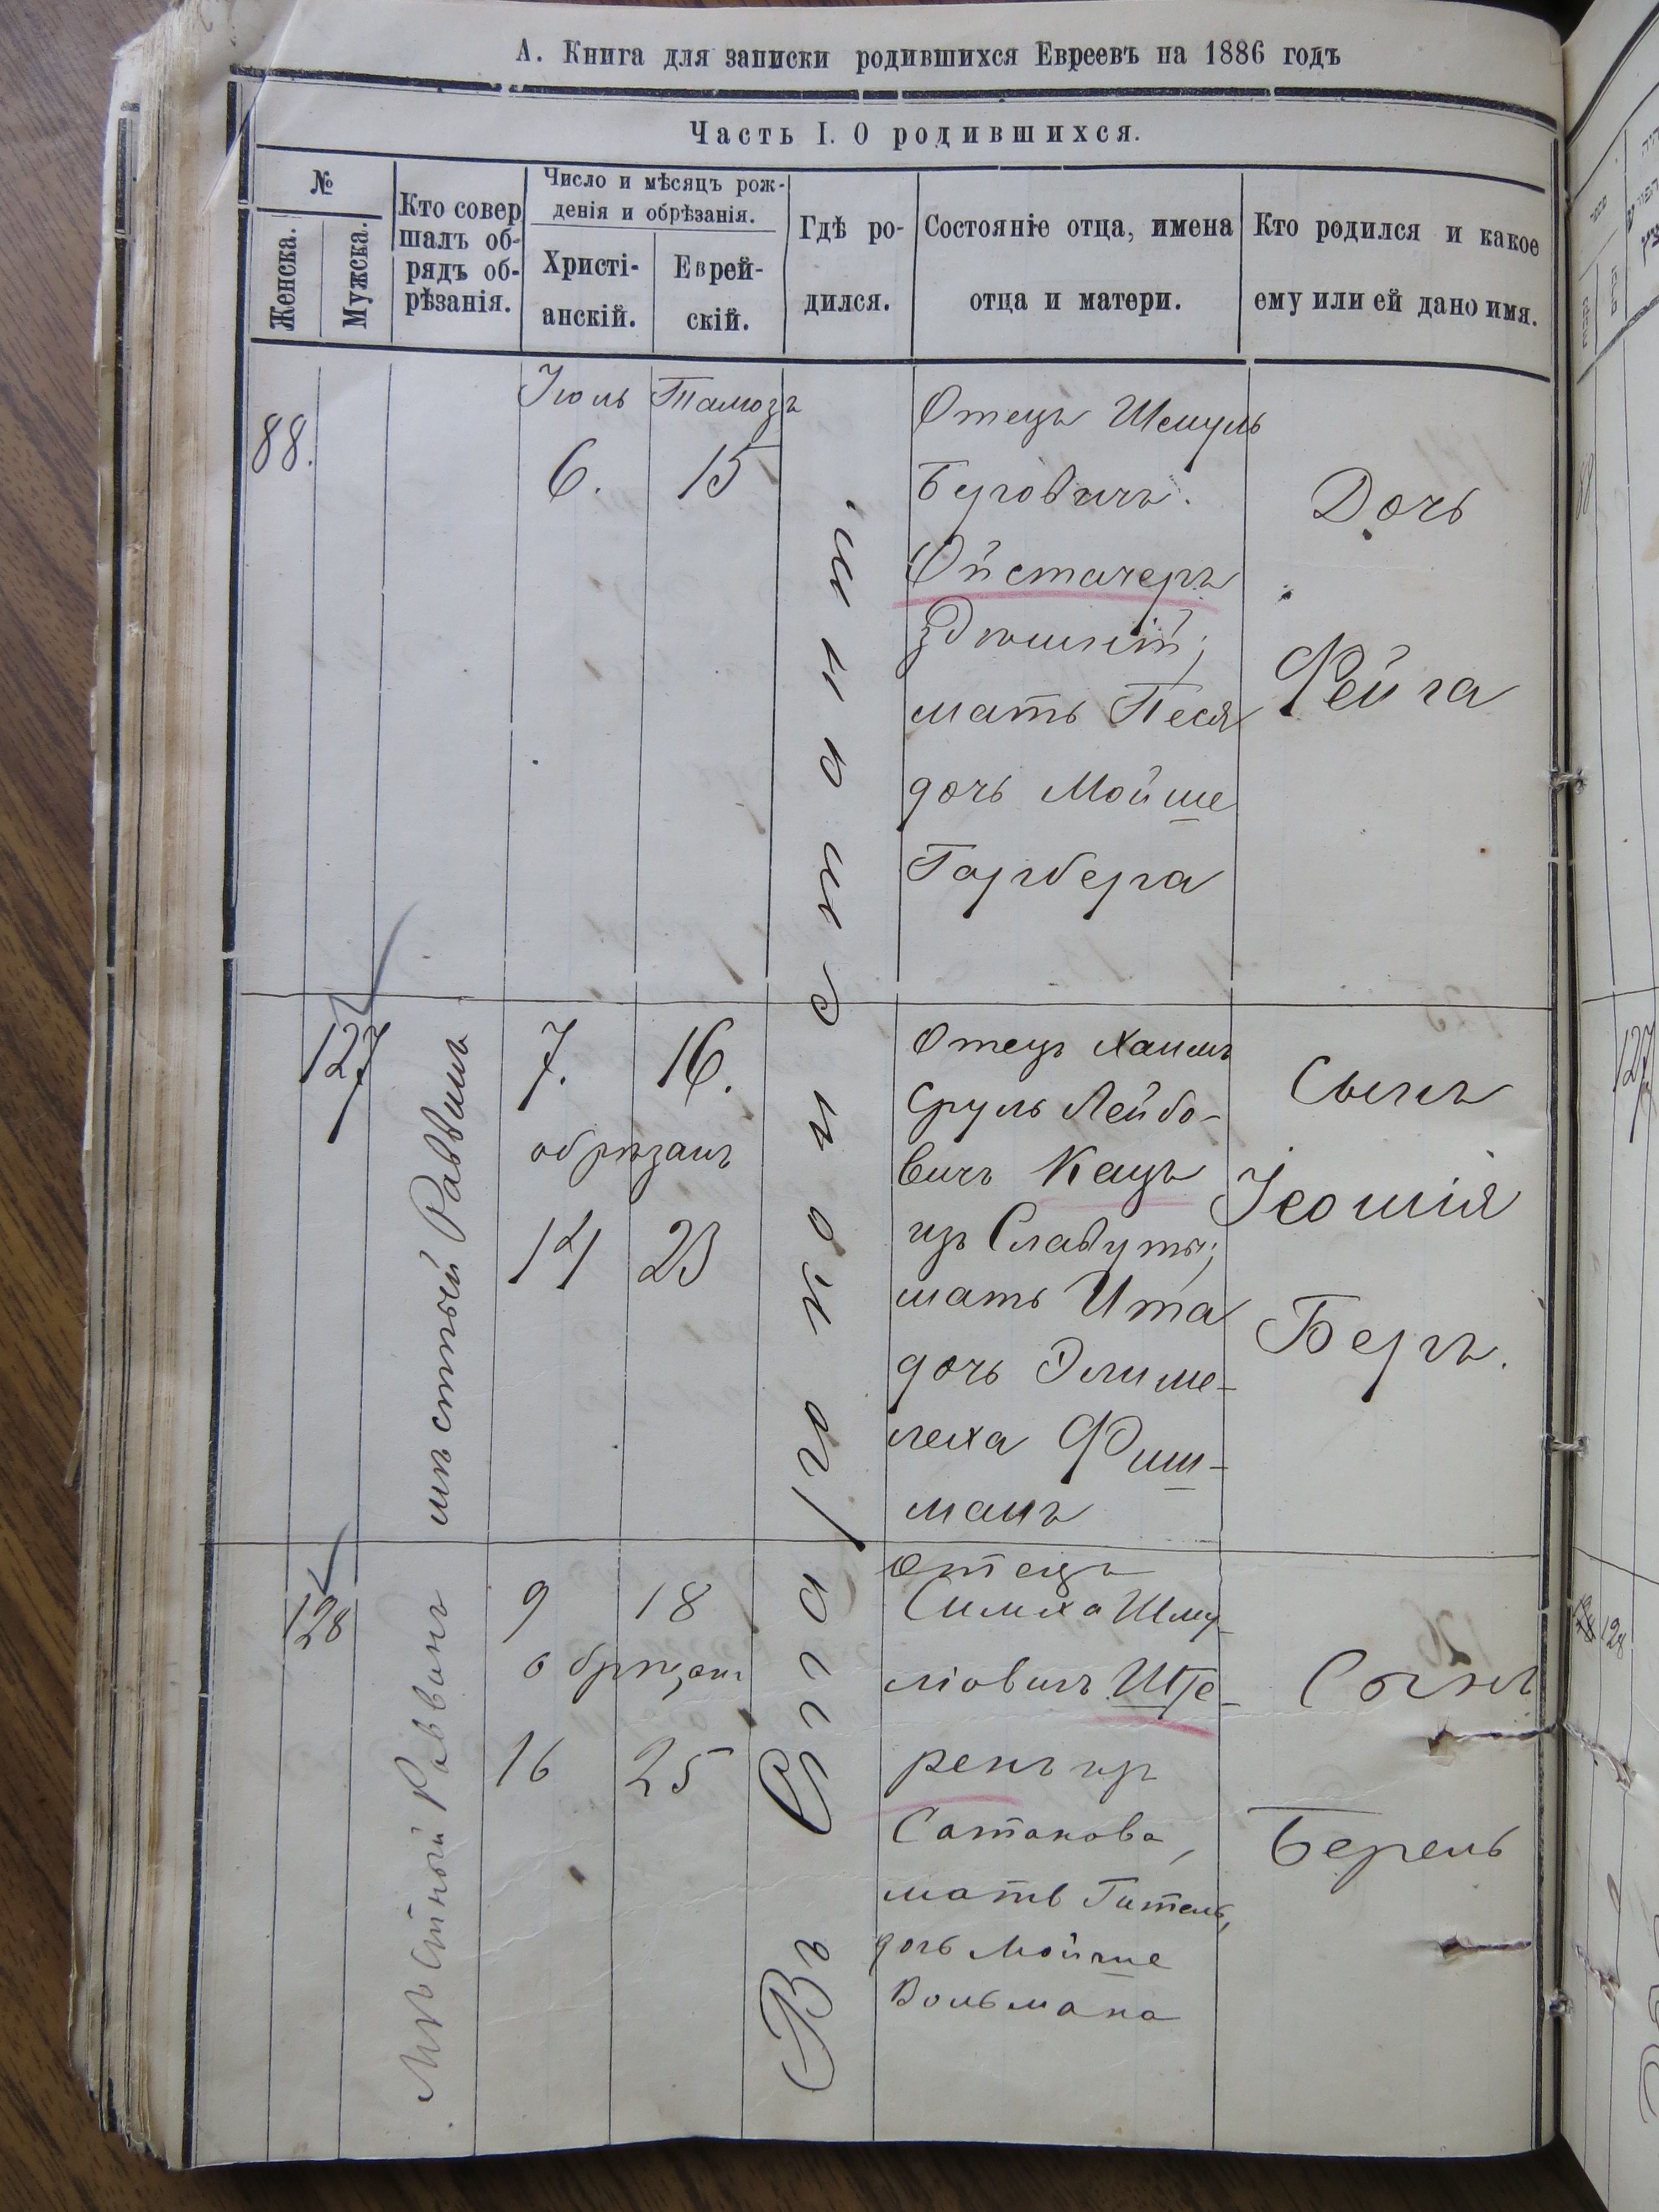 А. Книга для записки родившихся Евреевъ на 1886 годъ
Часть I. О родившихся.
№
Женска.
Мужска.
Кто совер
шалъ об-
рядъ об-
рѣзанія.
Число и мѣсяцъ рож-
денія и обрѣзанія.
Христі-
анскій.
Еврей-
скій.
Гдѣ ро-
дился.
Состояніе отца, имена
отца и матери.
Кто родился и какое
ему или ей дано имя.
88.
Іюль
6.
Тамозъ
15
Въ Староконстан
Отецъ Шмуль
Ойстачеръ
здѣшній;
мать Песя
дочь Мойше
Горнберга
Дочь
Фейга
127
мѣстный Раввинъ
7. 16.
обрѣзанъ
14 23
Отецъ Хаимъ
Сруль Лейбо-
вичъ Кацъ
изъ Славуты;
мать Ита
дочь Элиме-
леха Фиш-
манъ
Сынъ
Іеошія
Беръ.
128
Мѣстный Раввинъ
9 18
обрѣзанъ
16 25
отецъ
Симха Шму-
ліовичъ Ште-
ренъ изъ
Сатанова,
мать Гитель,
дочь Мойше
Вольмана
Сынъ
Берель
127
128